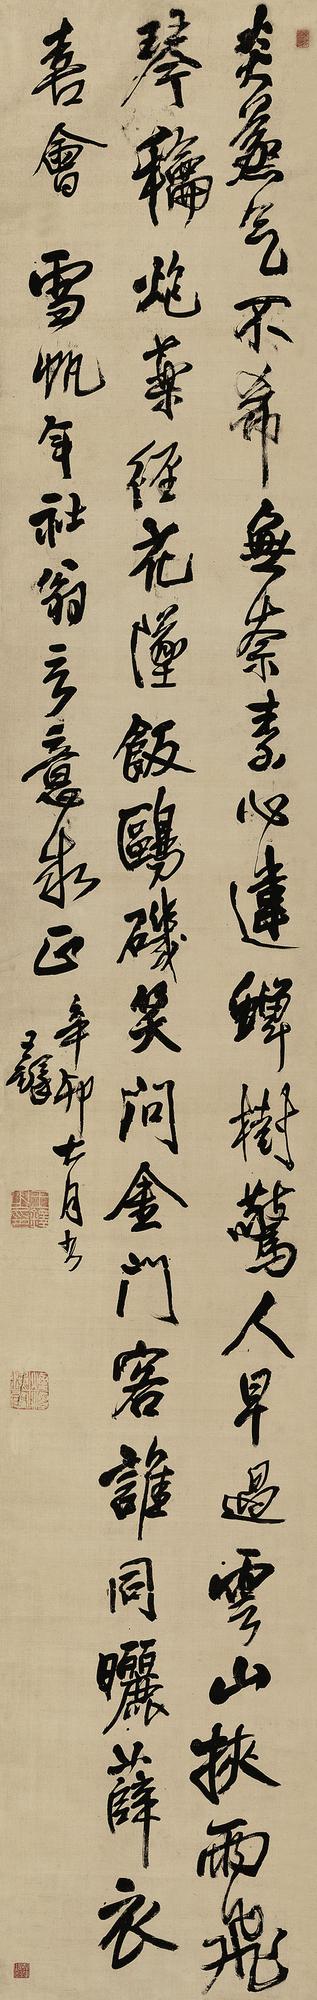 炎蒸气不希無奈素心違蟬樹驚人早過雲山挾雨飛
琴龢炮藥徑花墜飯鷗磯笑問金門客誰同曬薜衣
喜會 雪帆年社翁意求正 辛卯月書
王鐸